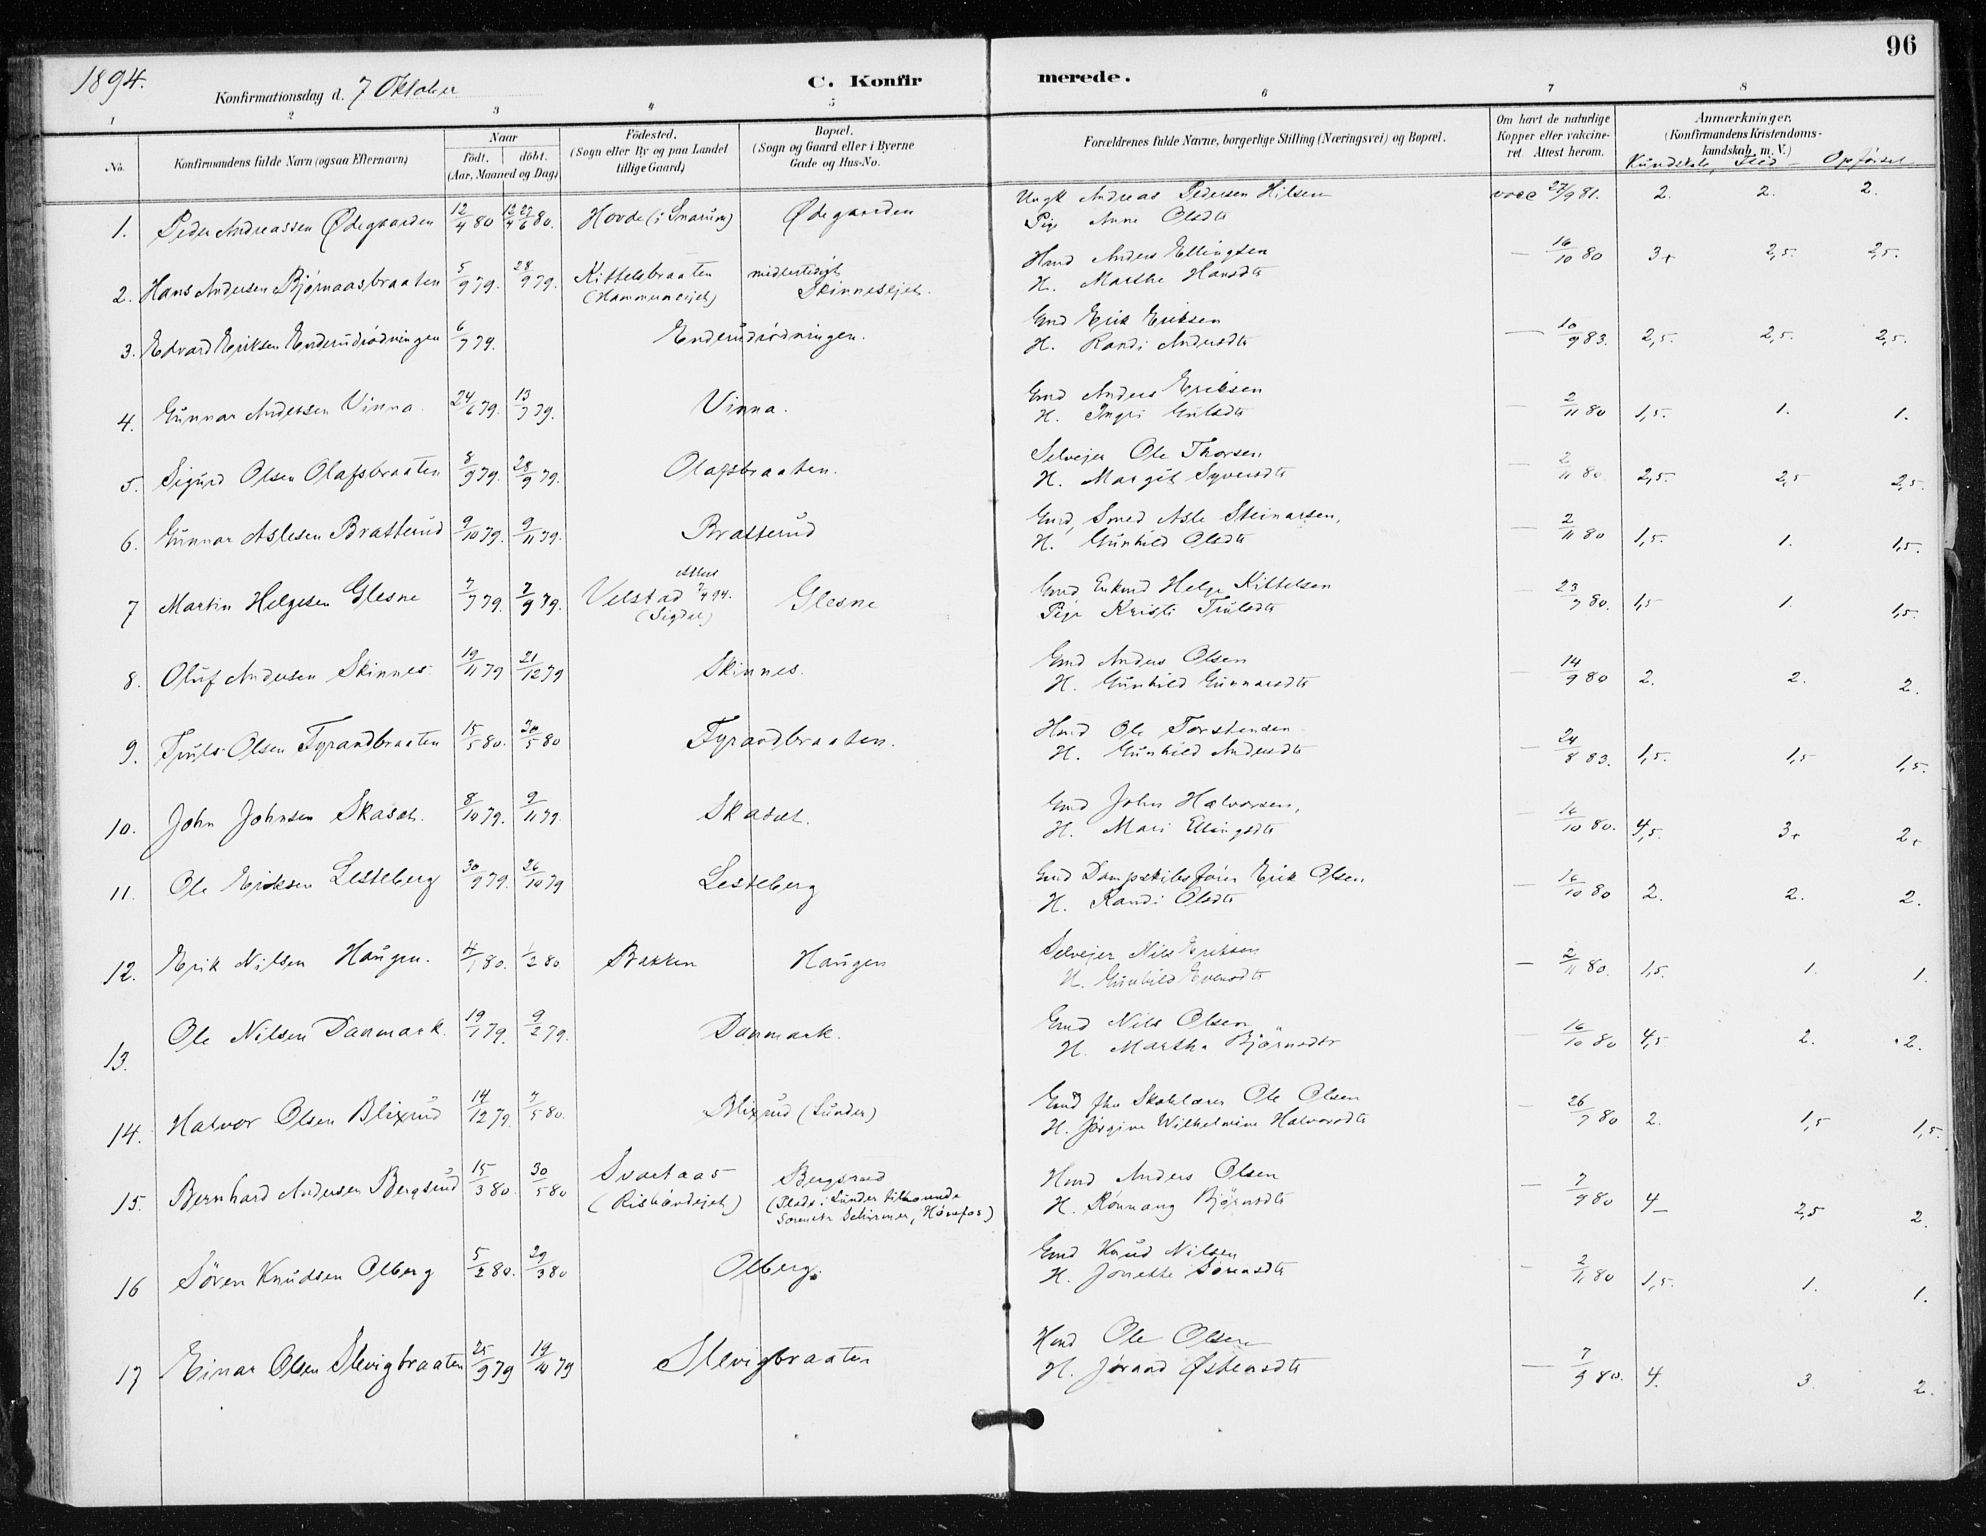 96
1894.
Konfirmationsdag d. 7 Oktober
C. Konfirmerede.
1 2 3 4 5 6 7 8
No.
Konfirmandens fulde Navn (ogsaa Efternavn)
Naar
født. døbt.
(Aar, Maaned og Dag)
Fødested.
(Sogn eller By og paa Landet
tillige Gaard)
Bopæl.
(Sogn og Gaard eller i Byerne
Gade og Hus-No.
Forældrenes fulde Navne, borgerlige Stilling (Næringsvei) og Bopæl.
Om havt de naturlige
Kopper eller vakcine-
ret. Attest herom.
Anmærkninger.
(Konfirmandens Kristendoms-
kundskab, m. V.)
Kundskab, Flid Opførsel
1. Peder Andreassen Ødegaarden 12/4 80 27/6 80. Hovde (i Snarum) Ødegaarden Ungk Andreas Pedersen Hilsen vacc 27/9 81. 2. 2. 2.
Pige Anne Olsdtr
2. Hans Andersen Bjørnaasbraaten 5/9 79. 28/9 79. Kittelsbraaten midlertidigt Hmd Anders Ellingsen — 16/10 80 3+ 2,5. 2,5.
(Hammerneiet) Skinneseiet. H. Marthe Hansdtr
3. Edvard Eriksen Enderudrødningen 6/7 79. Enderudrødningen. Gmd Erik Eriksen — 10/9 83. 2,5. 2,5. 2,5.
H. Randi Andersdtr
4. Gunnar Andersen Vinna. 24/6 79. 13/7 79. Vinna. Gmd Anders Eriksen — 2/11 80 1,5. 1. 1.
H. Ingri Gulsdtr
5. Sigurd Olsen Olafsbraaten 8/9 79. 28/9 79. Olafsbraaten. Selvejer Ole Thorsen — 2/11 80. 2,5. 2,5 2,5.
H. Margit Syversdtr
6. Gunnar Aslesen Bratterud 9/10 79. 9/11 79. Bratterud Gmd, Smed Asle Steinarsen, — 2/11 80 1,5. 1. 1,5.
H. Gunhild Olsdtr
7 Martin Helgesen Glesne 7/7 79. 7/9 79. Velstad Attest 7/4 94. Glesne Gmd Enkmd Helge Kittelsen — 23/7 80. 1,5 1. 1,5.
(Sigdal) Pige Kristi Trulsdtr
8. Oluf Andersen Skinnes. 19/11 79 21/12 79 Skinnes. Gmd Anders Olsen — 14/9 80 2. 2. 2.
H. Gunhild Gunnarsdtr
9. Truls Olsen Tyrandbraaten 15/5 80. 30/5 80 Tyrandbraaten. Hmd Ole Torstensen — 24/8 83. 1,5. 1,5 1,5.
H. Gunhild Andersdtr
10. John Johnsen Skasæt. 8/10 79. 9/11 79. Skasæt. Gmd John Halvorsen, — 16/10 80. 4,5. 3+ 2+
H. Mari Ellingsdtr
11. Ole Eriksen Lesteberg 30/9 79. 26/10 79 Lesteberg Gmd Dampskibsfører Erik Olsen — 16/10 80 2. 2. 2.
H. Randi Olsdtr
12. Erik Nilsen Haugen. 4/1 80. 1/2 80 Bakken Haugen Selvejer Nils Eriksen — 2/11 80. 1,5. 1. 1.
H. Gunhild Evensdtr
13. Ole Nilsen Danmark. 19/1 79. 9/2 79. Danmark. Gmd Nils Olsen — 16/10 80 4,5. 2. 2.
H. Martha Bjørnsdtr
14. Halvor Olsen Blixrud 14/12 79. 7/5 80. Blixrud (Lunder) Gmd fhv Skolelærer Ole Olsen — 26/7 80 2. 1,5 1,5.
H. Jørgine Wilhelmine Halvorsdtr
15. Bernhard Andersen Bergsrud 15/3 80. 30/5 80 Svartaas Bergsrud Hmd Anders Olsen — 7/9 80 4- 2,5 2.
(Ristbardejet) (Plads i Lunder tilhørende H. Rønnaug Bjørnsdtr
Sorenskr Schirmer, Hønefos)
16 Søren Knudsen Olberg 5/2 80. 29/3 80 Olberg. Gmd Knud Nilsen — 2/11 80 1,5. 1. 1.
H. Jonette Sørensdtr
17 Einar Olsen Slevigbraaten 25/9 79 19/10 79 Slevigbraaten Hmd Ole Olsen — 7/9 80. 4. 3. 2.
H. Jørand Østensdtr